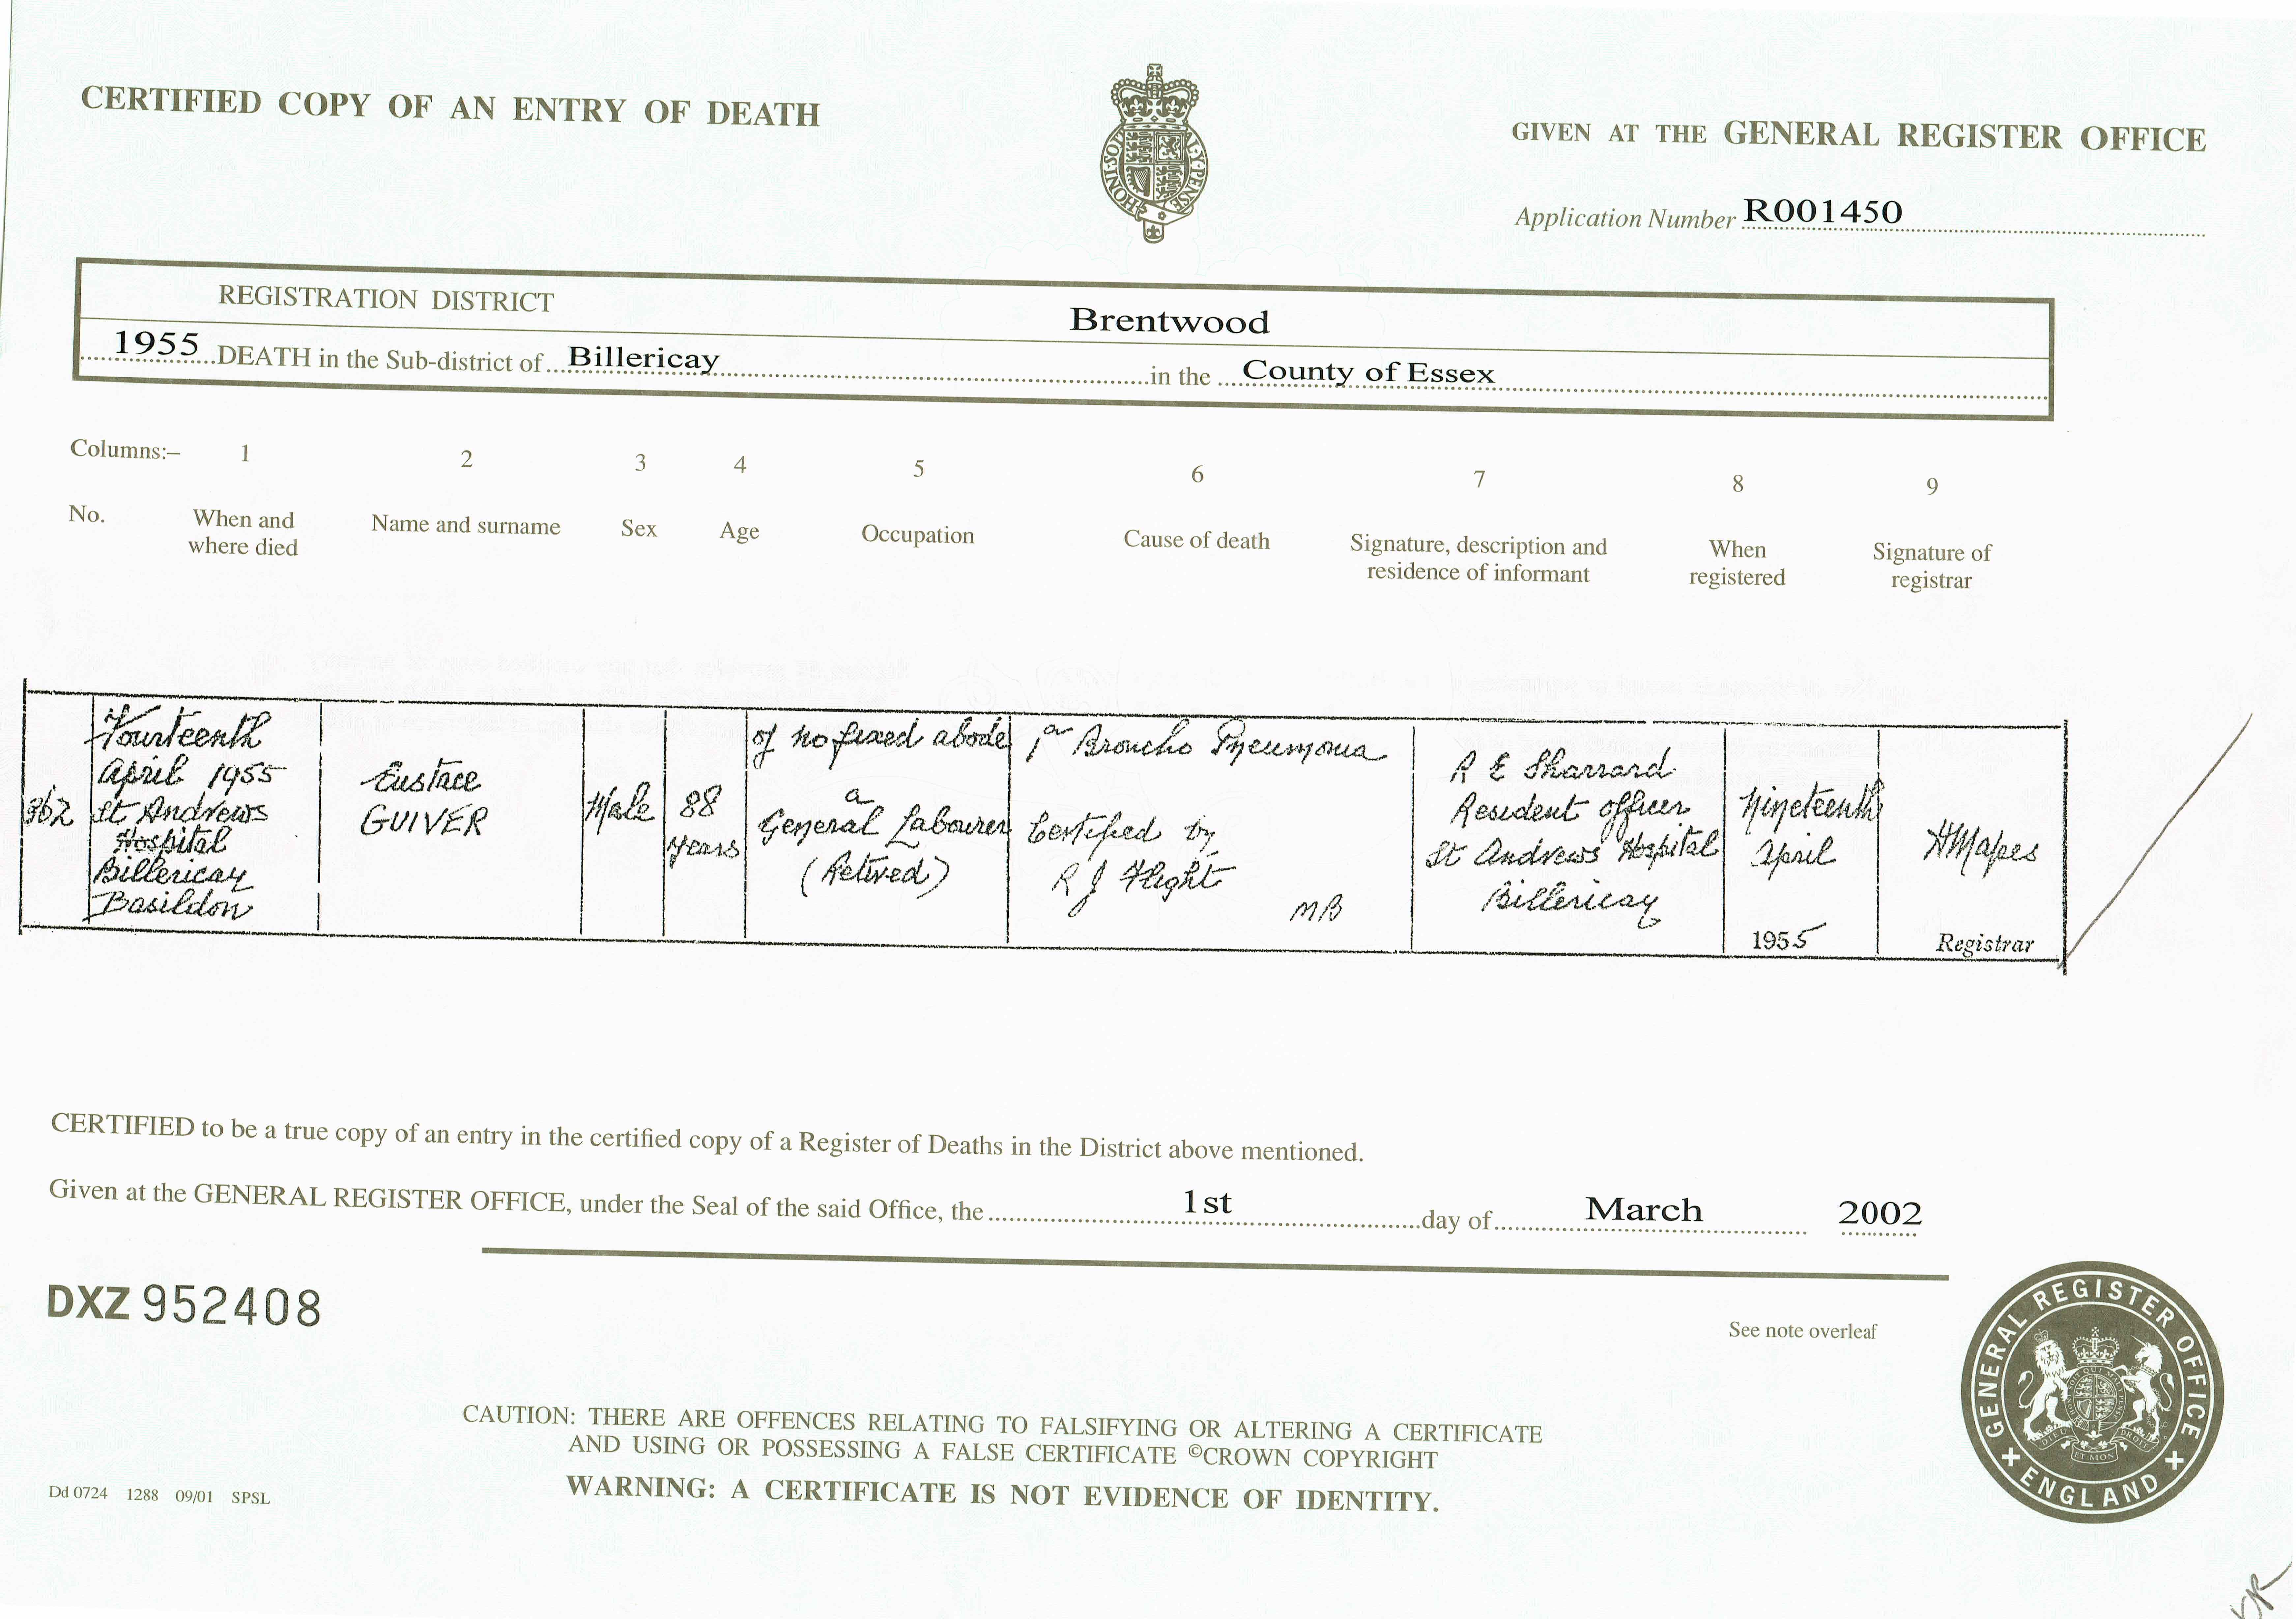 CERTIFIED COPY OF AN ENTRY OF DEATH
GIVEN AT THE GENERAL REGISTER OFFICE
HONI·SOIT AL·Y·PENSE
Application Number R001450
REGISTRATION DISTRICT Brentwood
1955 DEATH in the Sub-district of Billericay in the County of Essex
Columns:– 1 2 3 4 5 6 7 8 9
No.
When and
where died
Name and surname
Sex
Age
Occupation
Cause of death
Signature, description and
residence of informant
When
registered
Signature of
registrar
362
Fourteenth
April 1955
St Andrews
Hospital
Billericay
Basildon
Eustace
GUIVER
Male
88
years
of no fixed abode
a
General Labourer
(Retired)
1a Broncho Pneumonia
Certified by
R J Flight
MB
R E Sharrard
Resident officer
St Andrews Hospital
Billericay
Nineteenth
April
1955
HMapes
Registrar
CERTIFIED to be a true copy of an entry in the certified copy of a Register of Deaths in the District above mentioned.
Given at the GENERAL REGISTER OFFICE, under the Seal of the said Office, the 1st day of March 2002
DXZ 952408
See note overleaf
GENERAL REGISTER OFFICE
ENGLAND
DIEU ET MON DROIT
CAUTION: THERE ARE OFFENCES RELATING TO FALSIFYING OR ALTERING A CERTIFICATE
AND USING OR POSSESSING A FALSE CERTIFICATE ©CROWN COPYRIGHT
WARNING: A CERTIFICATE IS NOT EVIDENCE OF IDENTITY.
Dd 0724 1288 09/01 SPSL